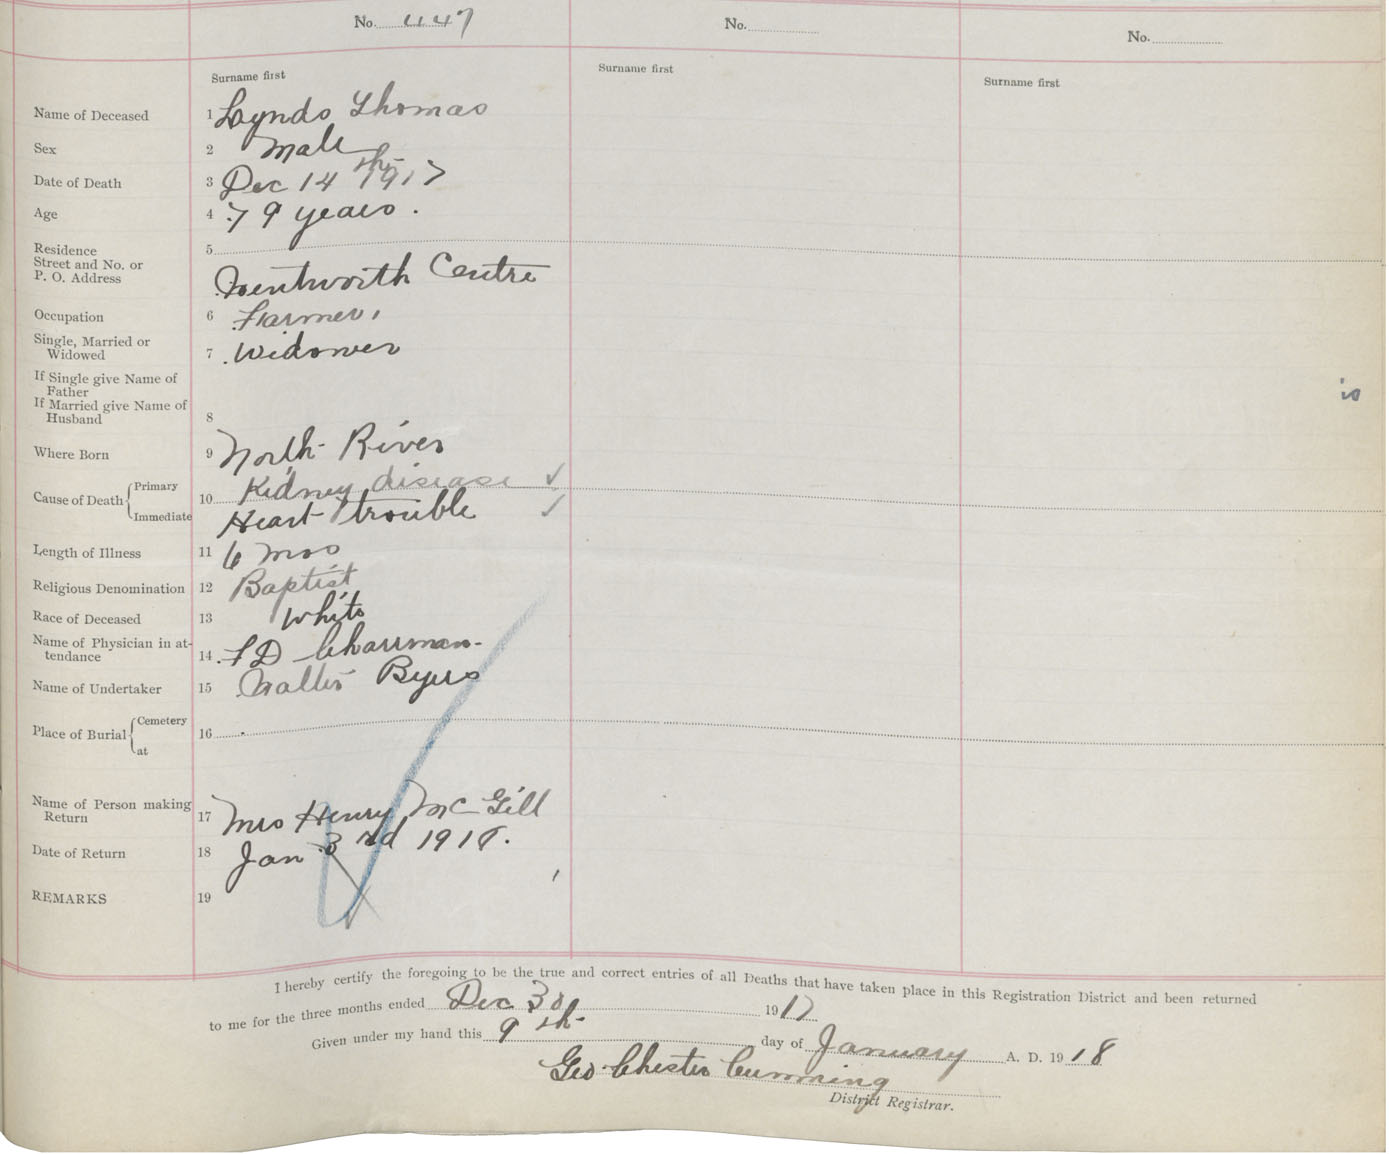 No. 447
No.
No.
Surname first
Surname first
Surname first
Name of Deceased 1 Lynds Thomas
Sex 2 Male
Date of Death 3 Dec 14th 1917
Age 4 79 years.
Residence 5
Street and No. or
P. O. Address Wentworth Centre
Occupation 6 Farmer
Single, Married or
Widowed 7 Widower
If Single give Name of
Father
If Married give Name of
Husband 8
Where Born 9 North River
Cause of Death Primary 10 Kidney disease ✓
Immediate Heart trouble ✓
Length of Illness 11 6 mos
Religious Denomination 12 Baptist
Race of Deceased 13 White
Name of Physician in at-
tendance 14 F D Charman
Name of Undertaker 15 Walter Byers
Place of Burial Cemetery 16
at
Name of Person making
Return 17 Mrs Henry McGill
Date of Return 18 Jan 3rd 1918.
REMARKS 19
is
I hereby certify the foregoing to be the true and correct entries of all Deaths that have taken place in this Registration District and been returned
to me for the three months ended Dec 30 1917
Given under my hand this 9th day of January A. D. 1918
Geo Chester Cumming
District Registrar.